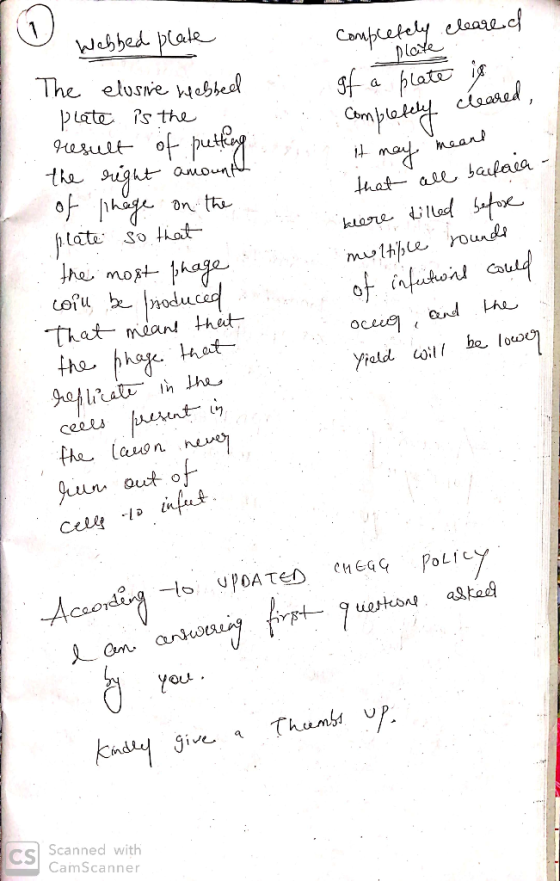 1
Webbed plate
The elusive webbed
plate is the
result of putting
the right amount
of phage on the
plate so that
the most phage
will be produced
That means that
the phage that
replicate in the
cells present in
the lawn never
run out of
cells to infect.
Completely cleared
plate
If a plate is
completely cleared,
it may means
that all bacteria
were killed before
multiple rounds
of infections could
occur, and the
yield will be lower
According to UPDATED CHEGG POLICY
I am answering first questions asked
by you.
Kindly give a Thumbs up.
CS Scanned with
CamScanner